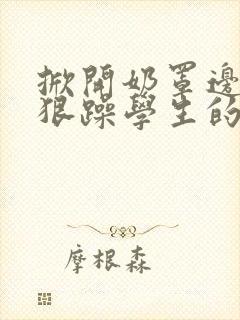 掀開奶罩邊
狠躁學生的
摩根森